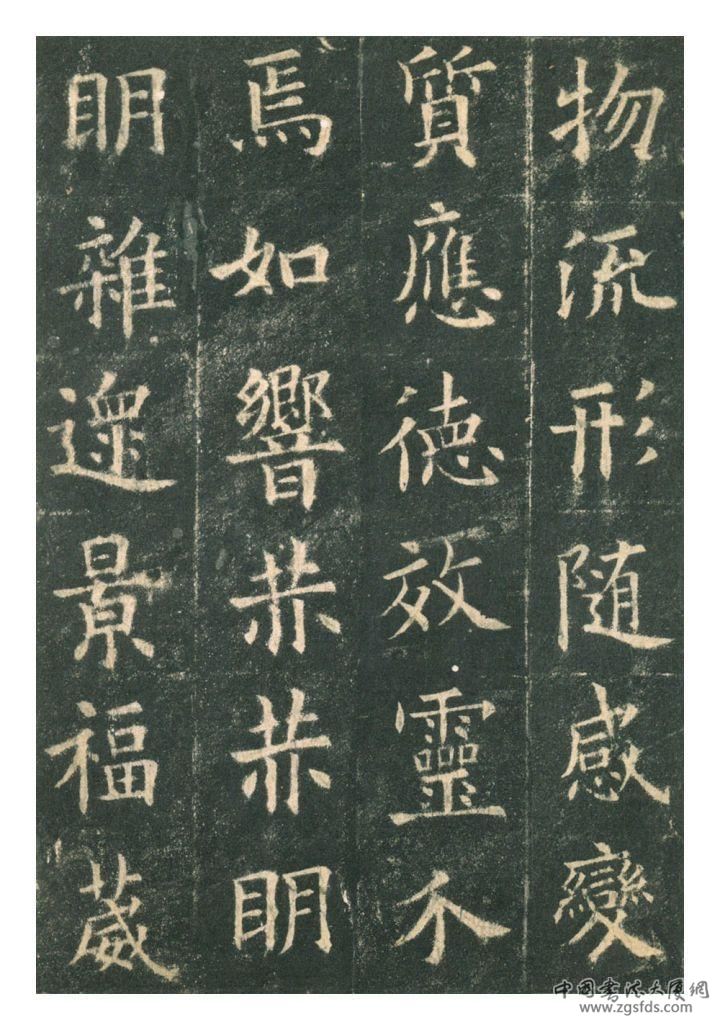 物流形随感變
質應德效靈不
焉如響赫赫明
明雜遝景福葳
中国书法大厦網
www.zgsfds.com